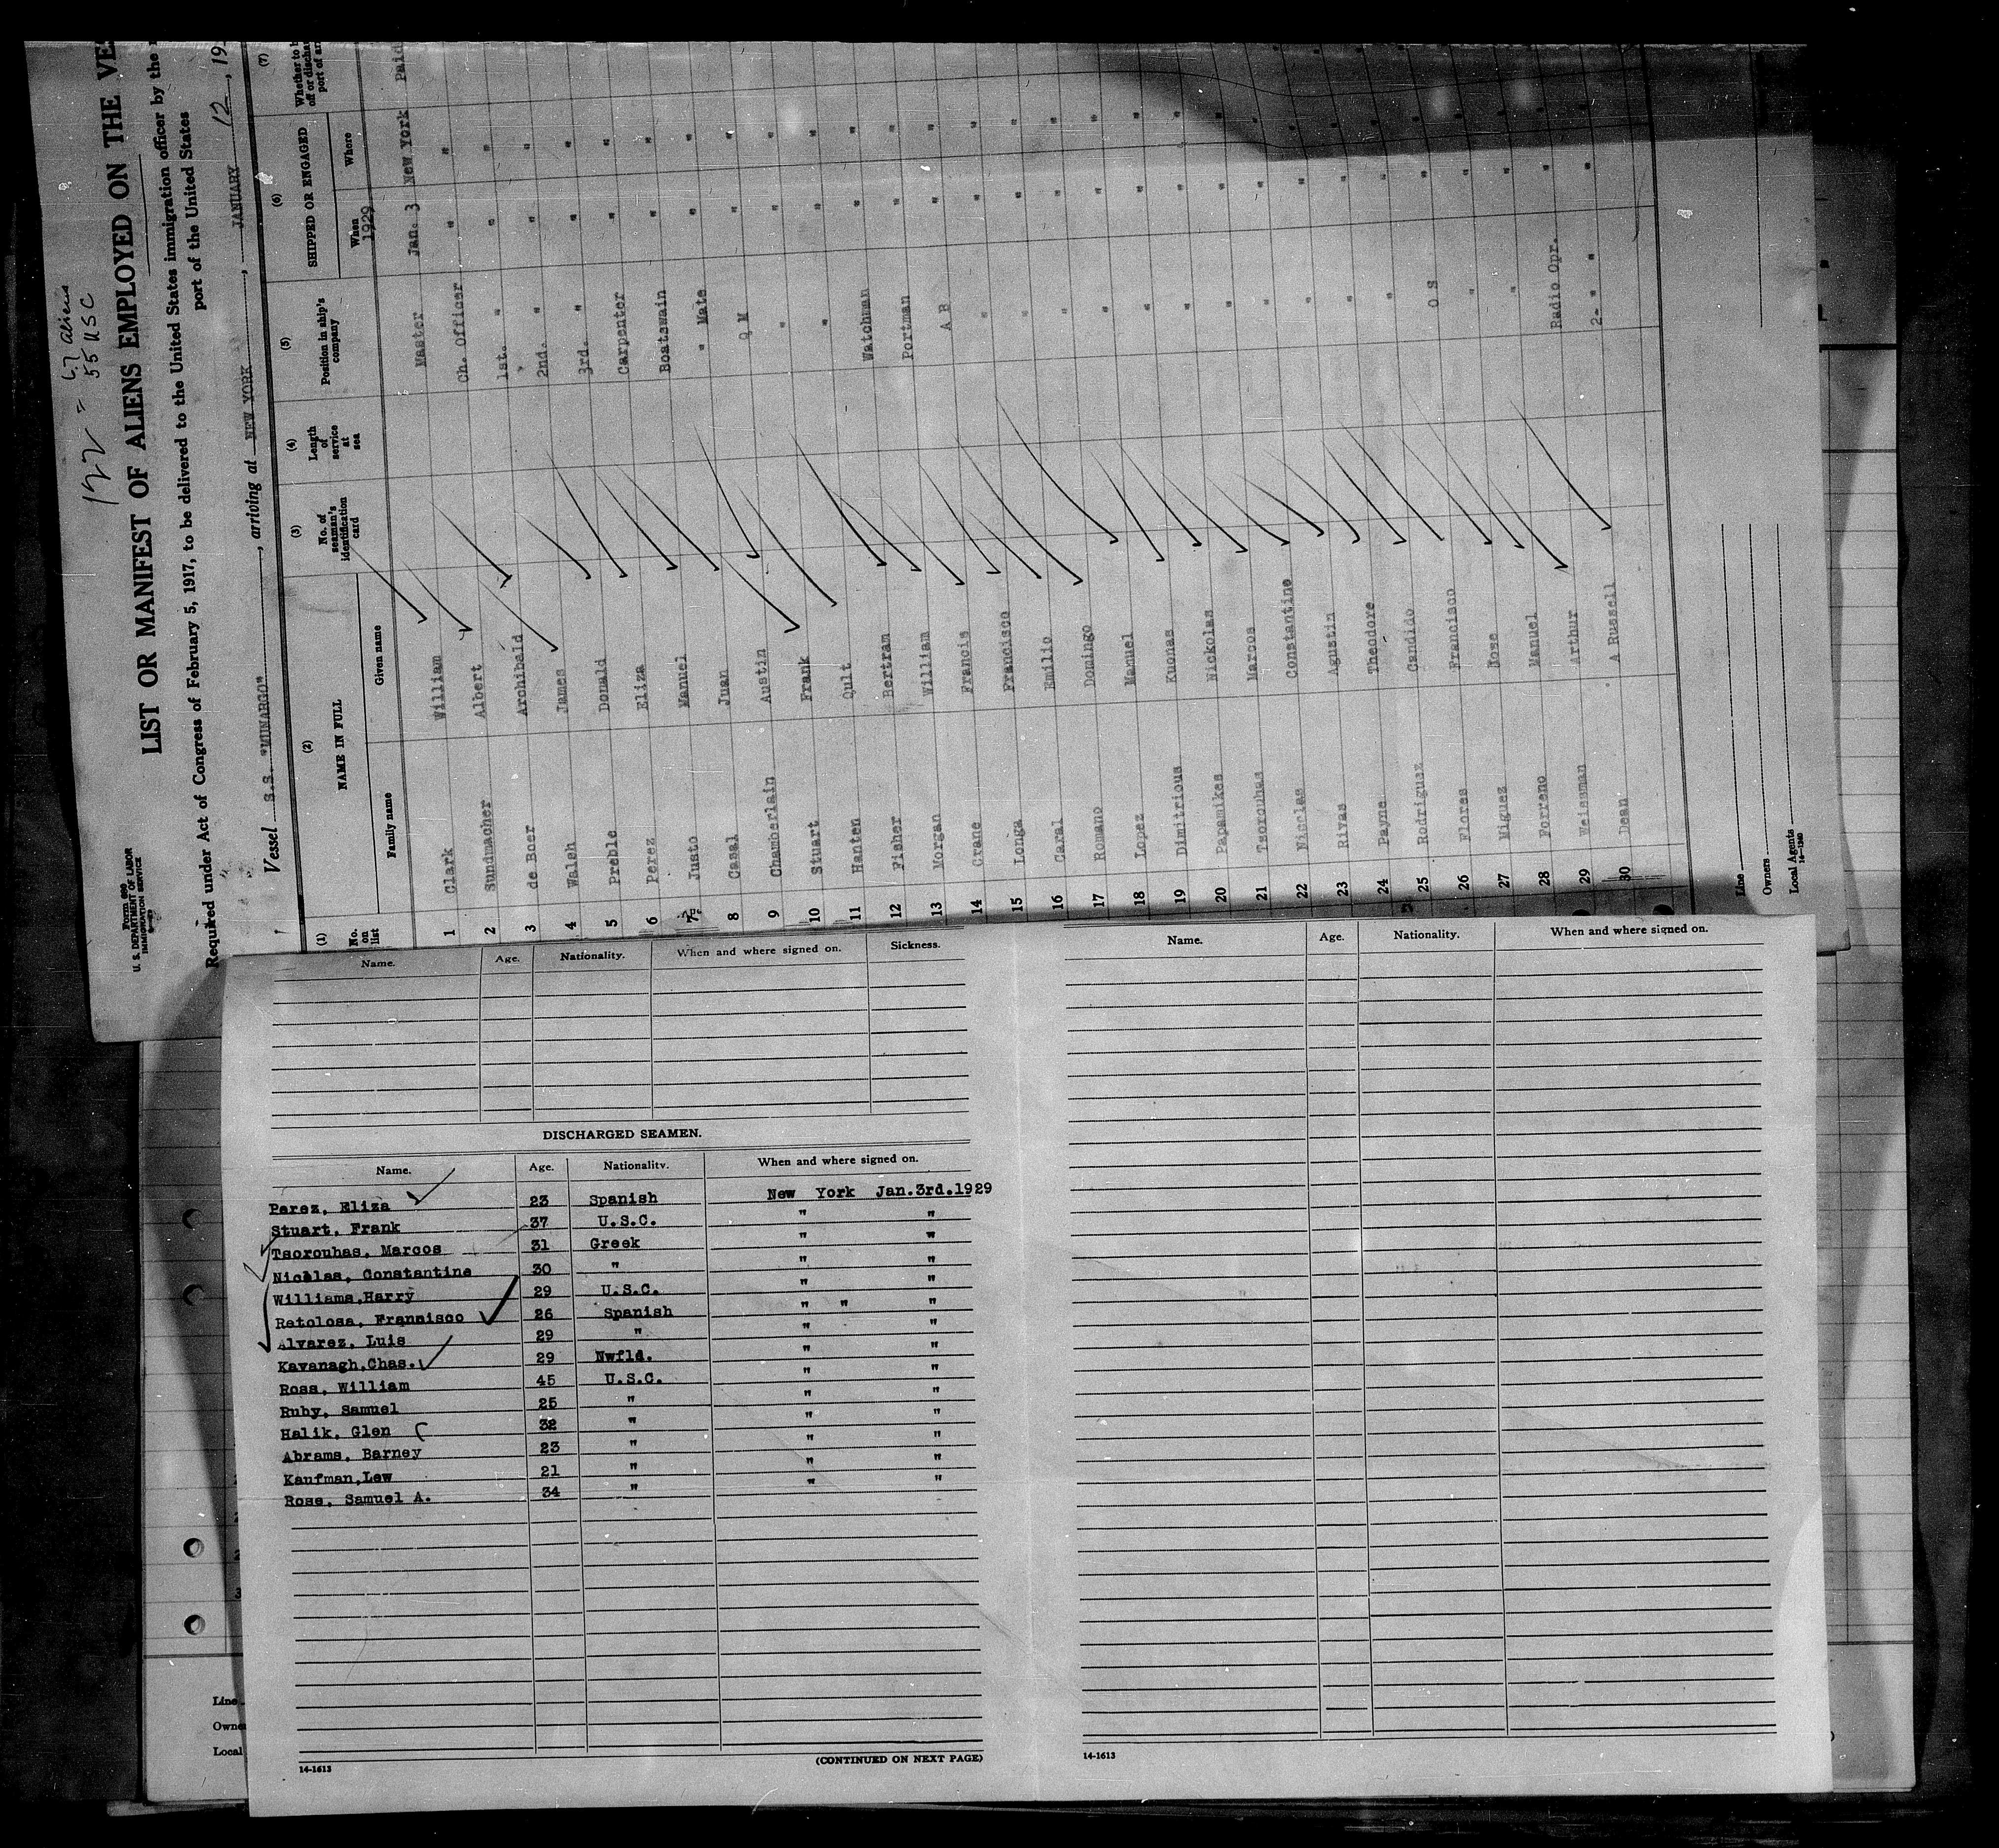 122 = 67 aliens
55 USC
Form 680
U. S. DEPARTMENT OF LABOR
IMMIGRATION SERVICE
LIST OR MANIFEST OF ALIENS EMPLOYED ON THE VE
Required under Act of Congress of February 5, 1917, to be delivered to the United States immigration officer by the
port of the United States
Vessel S.S. "MUNARGO", arriving at NEW YORK, JANUARY 12, 19
(1) (2) (3) (4) (5) (6) (7)
No. on list
NAME IN FULL
Family name Given name
No. of seaman's identification card
Length of service at sea
Position in ship's company
SHIPPED OR ENGAGED
When Where
1929
Whether to b
off or discha
port of ar
1 Clark William Master Jan. 3 New York Paid
2 Sundmacher Albert Ch. Officer " "
3 de Boer Archibald 1st. " " "
4 Walsh James 2nd. " " "
5 Preble Donald 3rd. " " "
6 Perez Eliza Carpenter " "
7 Justo Manuel Boatswain " "
8 Casal Juan " Mate " "
9 Chamberlain Austin Q M " "
10 Stuart Frank " " "
11 Hanten Quit " " "
12 Fisher Bertram Watchman " "
13 Morgan William Portman " "
14 Crane Francis A B " "
15 Longa Francisco " " "
16 Caral Emilio " " "
17 Romano Domingo " " "
18 Lopez Manuel " " "
19 Dimitrious Kuonas " " "
20 Papamikes Nickolas " " "
21 Tsorouhas Marcos " " "
22 Nicolas Constantine " " "
23 Rivas Agustin " " "
24 Payne Theodore " " "
25 Rodriguez Candido " " "
26 Flores Francisco O S " "
27 Miguez Jose " " "
28 Forreno Manuel " " "
29 Weissman Arthur Radio Opr. " "
30 Dean A Russell 2- " " " "
Line
Owners
Local Agents
14—1240
Name. Age. Nationality. When and where signed on. Sickness.
DISCHARGED SEAMEN.
Name. Age. Nationality. When and where signed on.
Perez, Eliza 23 Spanish New York Jan.3rd.1929
Stuart, Frank 37 U.S.C. " "
Tsorouhas, Marcos 31 Greek " "
Nicolas, Constantine 30 " " "
Williams,Harry 29 U.S.C. " "
Retolosa, Francisco 26 Spanish " " "
Alvarez, Luis 29 " " "
Kavanagh,Chas. 29 Nwfld. " "
Ross, William 45 U.S.C. " "
Ruby, Samuel 25 " " "
Halik, Glen 32 " " "
Abrams, Barney 23 " " "
Kaufman,Lew 21 " " "
Rose, Samuel A. 34 " " "
14-1613
(CONTINUED ON NEXT PAGE)
Name. Age. Nationality. When and where signed on.
14-1613
Line
Owne
Local